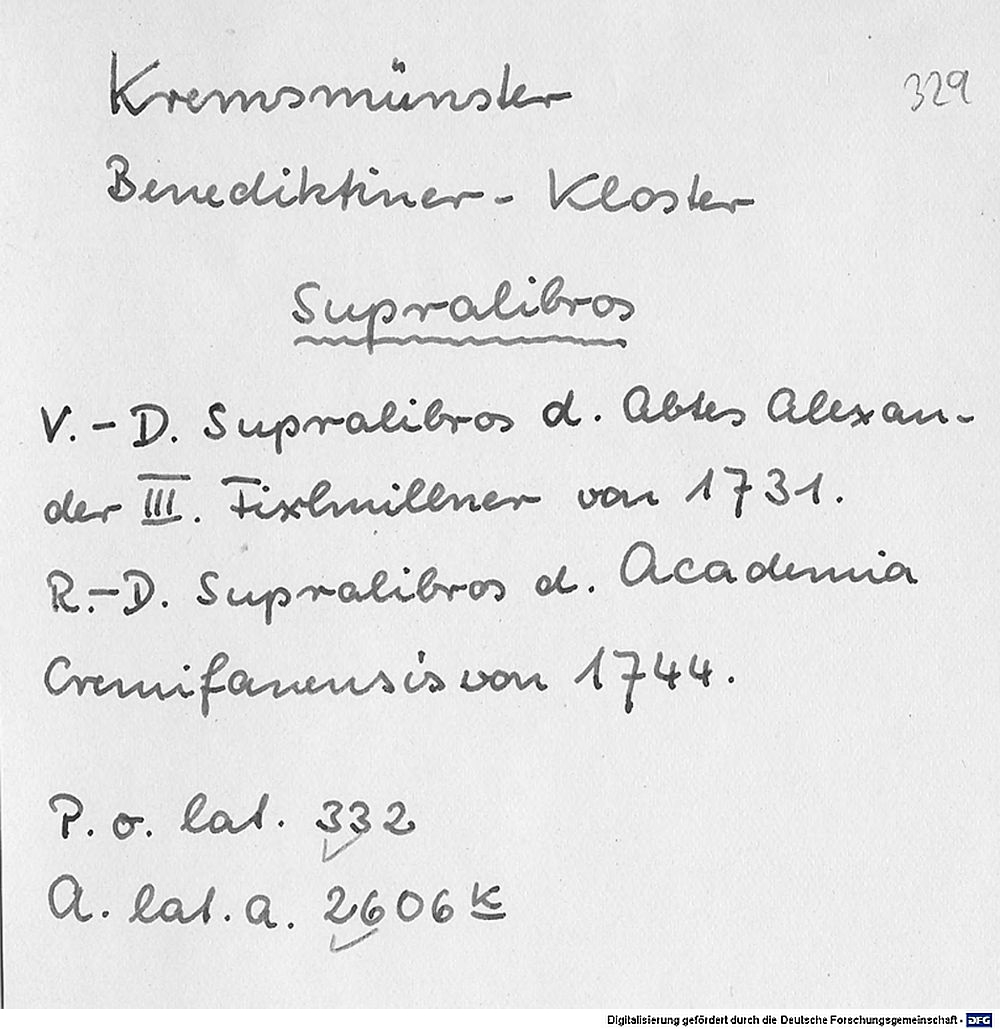 Kremsmünster
329
Benediktiner-Kloster
Supralibros
V.-D. Supralibros d. Abtes Alexan-
der III. Fixlmillner von 1731.
R.-D. Supralibros d. Academia
Cremifanensis von 1744.
P. o. lat. 332
A. lat. a. 2606 k
Digitalisierung gefördert durch die Deutsche Forschungsgemeinschaft - DFG